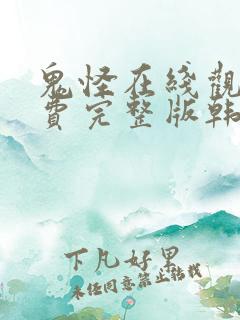 鬼怪在线觀
費完整版韩
下凡好男
未经同意禁止转载